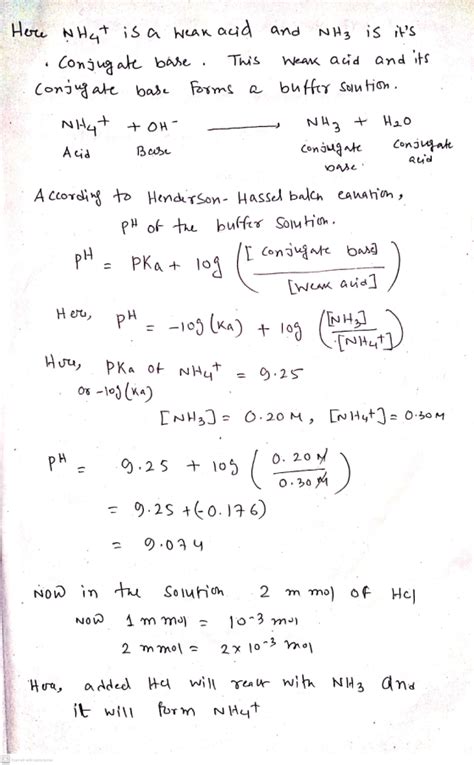 Here NH4+ is a weak acid and NH3 is it's
conjugate base. This weak acid and its
conjugate base forms a buffer solution.
NH4+ + OH- ⟶ NH3 + H2O
Acid Base conjugate base. conjugate acid
According to Henderson-Hasselbalch equation,
pH of the buffer solution.
pH = PKa + log ([conjugate base]/[weak acid])
Here, pH = -log(Ka) + log ([NH3]/[NH4+])
Here, PKa of NH4+ = 9.25
or -log(Ka)
[NH3] = 0.20 M, [NH4+] = 0.30M
pH = 9.25 + log (0.20 M/0.30 M)
= 9.25 + (-0.176)
= 9.074
Now in the solution 2 m mol of HCl
Now 1 m mol = 10-3 mol
2 m mol = 2x10-3 mol
Here, added HCl will react with NH3 and
it will form NH4+